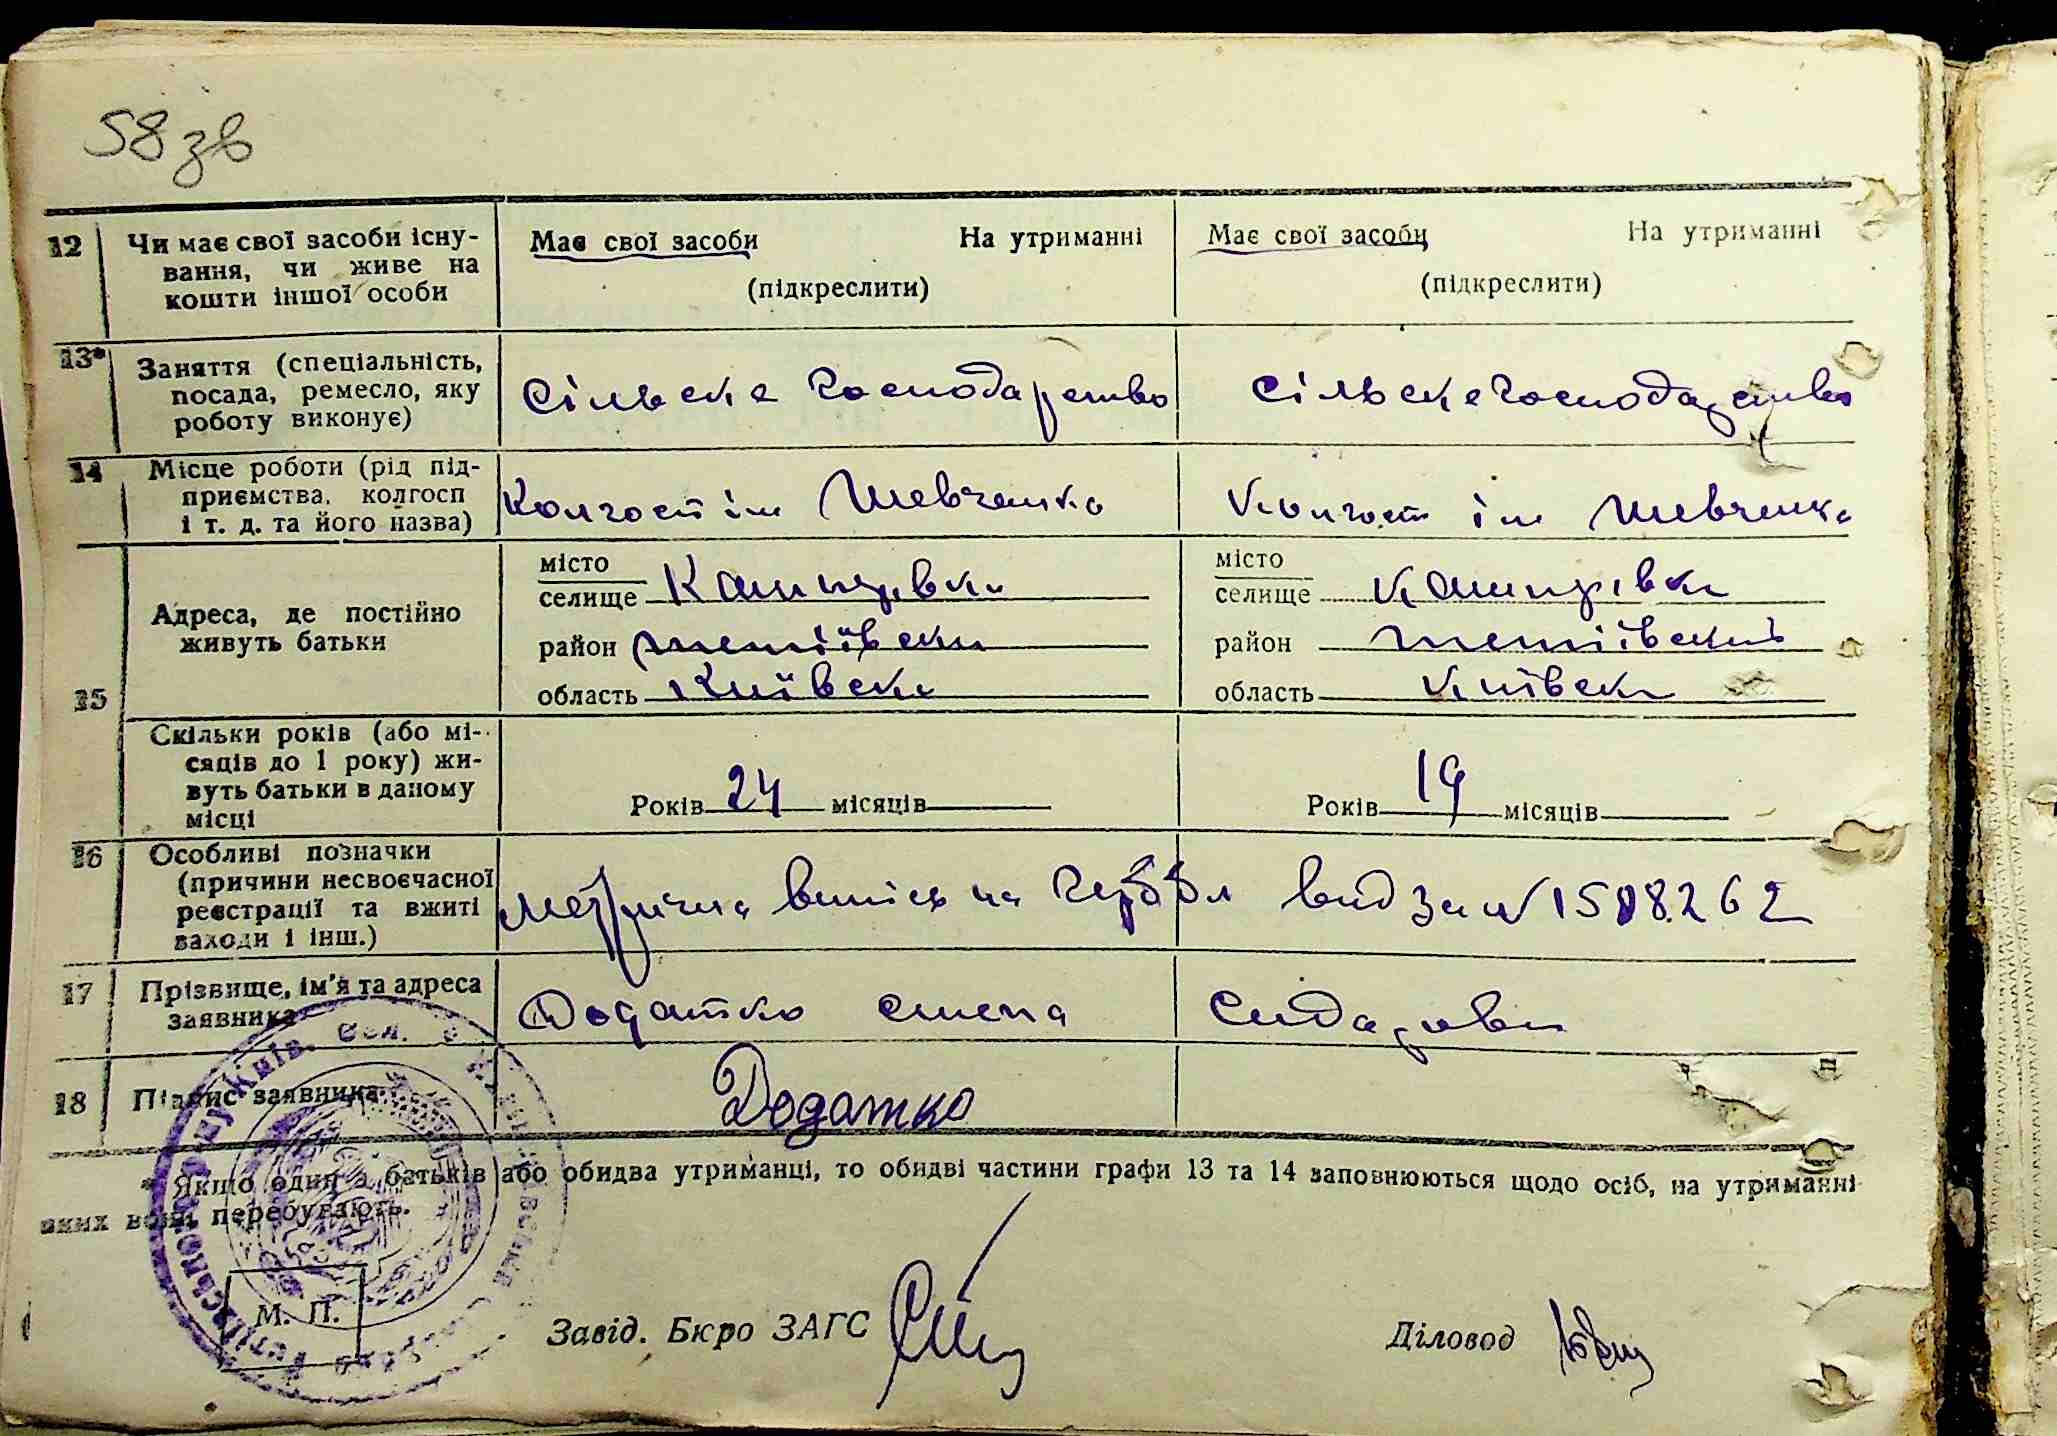 58 зв
12 Чи має свої засоби існу- Має свої засоби На утриманні Має свої засоби На утриманні
вання, чи живе на (підкреслити) (підкреслити)
кошти іншої особи
13* Заняття (спеціальність,
посада, ремесло, яку Сільске господарство Сільске господарство
роботу виконує)
14 Місце роботи (рід під-
приємства, колгосп Колгосп ім Шевченка Колгосп ім Шевченка
і т. д. та його назва)
місто місто
селище Кашперівка селище Кашперівка
15 Адреса, де постійно
живуть батьки район Тетіївськи район Тетіївський
область Київска область Київска
Скільки років (або мі-
сяців до 1 року) жи-
вуть батьки в даному Років 24 місяців Років 19 місяців
місці
16 Особливі позначки
(причини несвоєчасної
реєстрації та вжиті Метрична випісь на видзи
заходи і інш.)
17 Прізвище, ім'я та адреса Додатко Сидарови
заявника
18 Підпис заявника Додатко
* Якщо один з батьків або обидва утриманці, то обидві частини графи 13 та 14 заповнюються щодо осіб, на утриманні
яких вони перебувають.
М. П.
Завід. Бюро ЗАГС Діловод